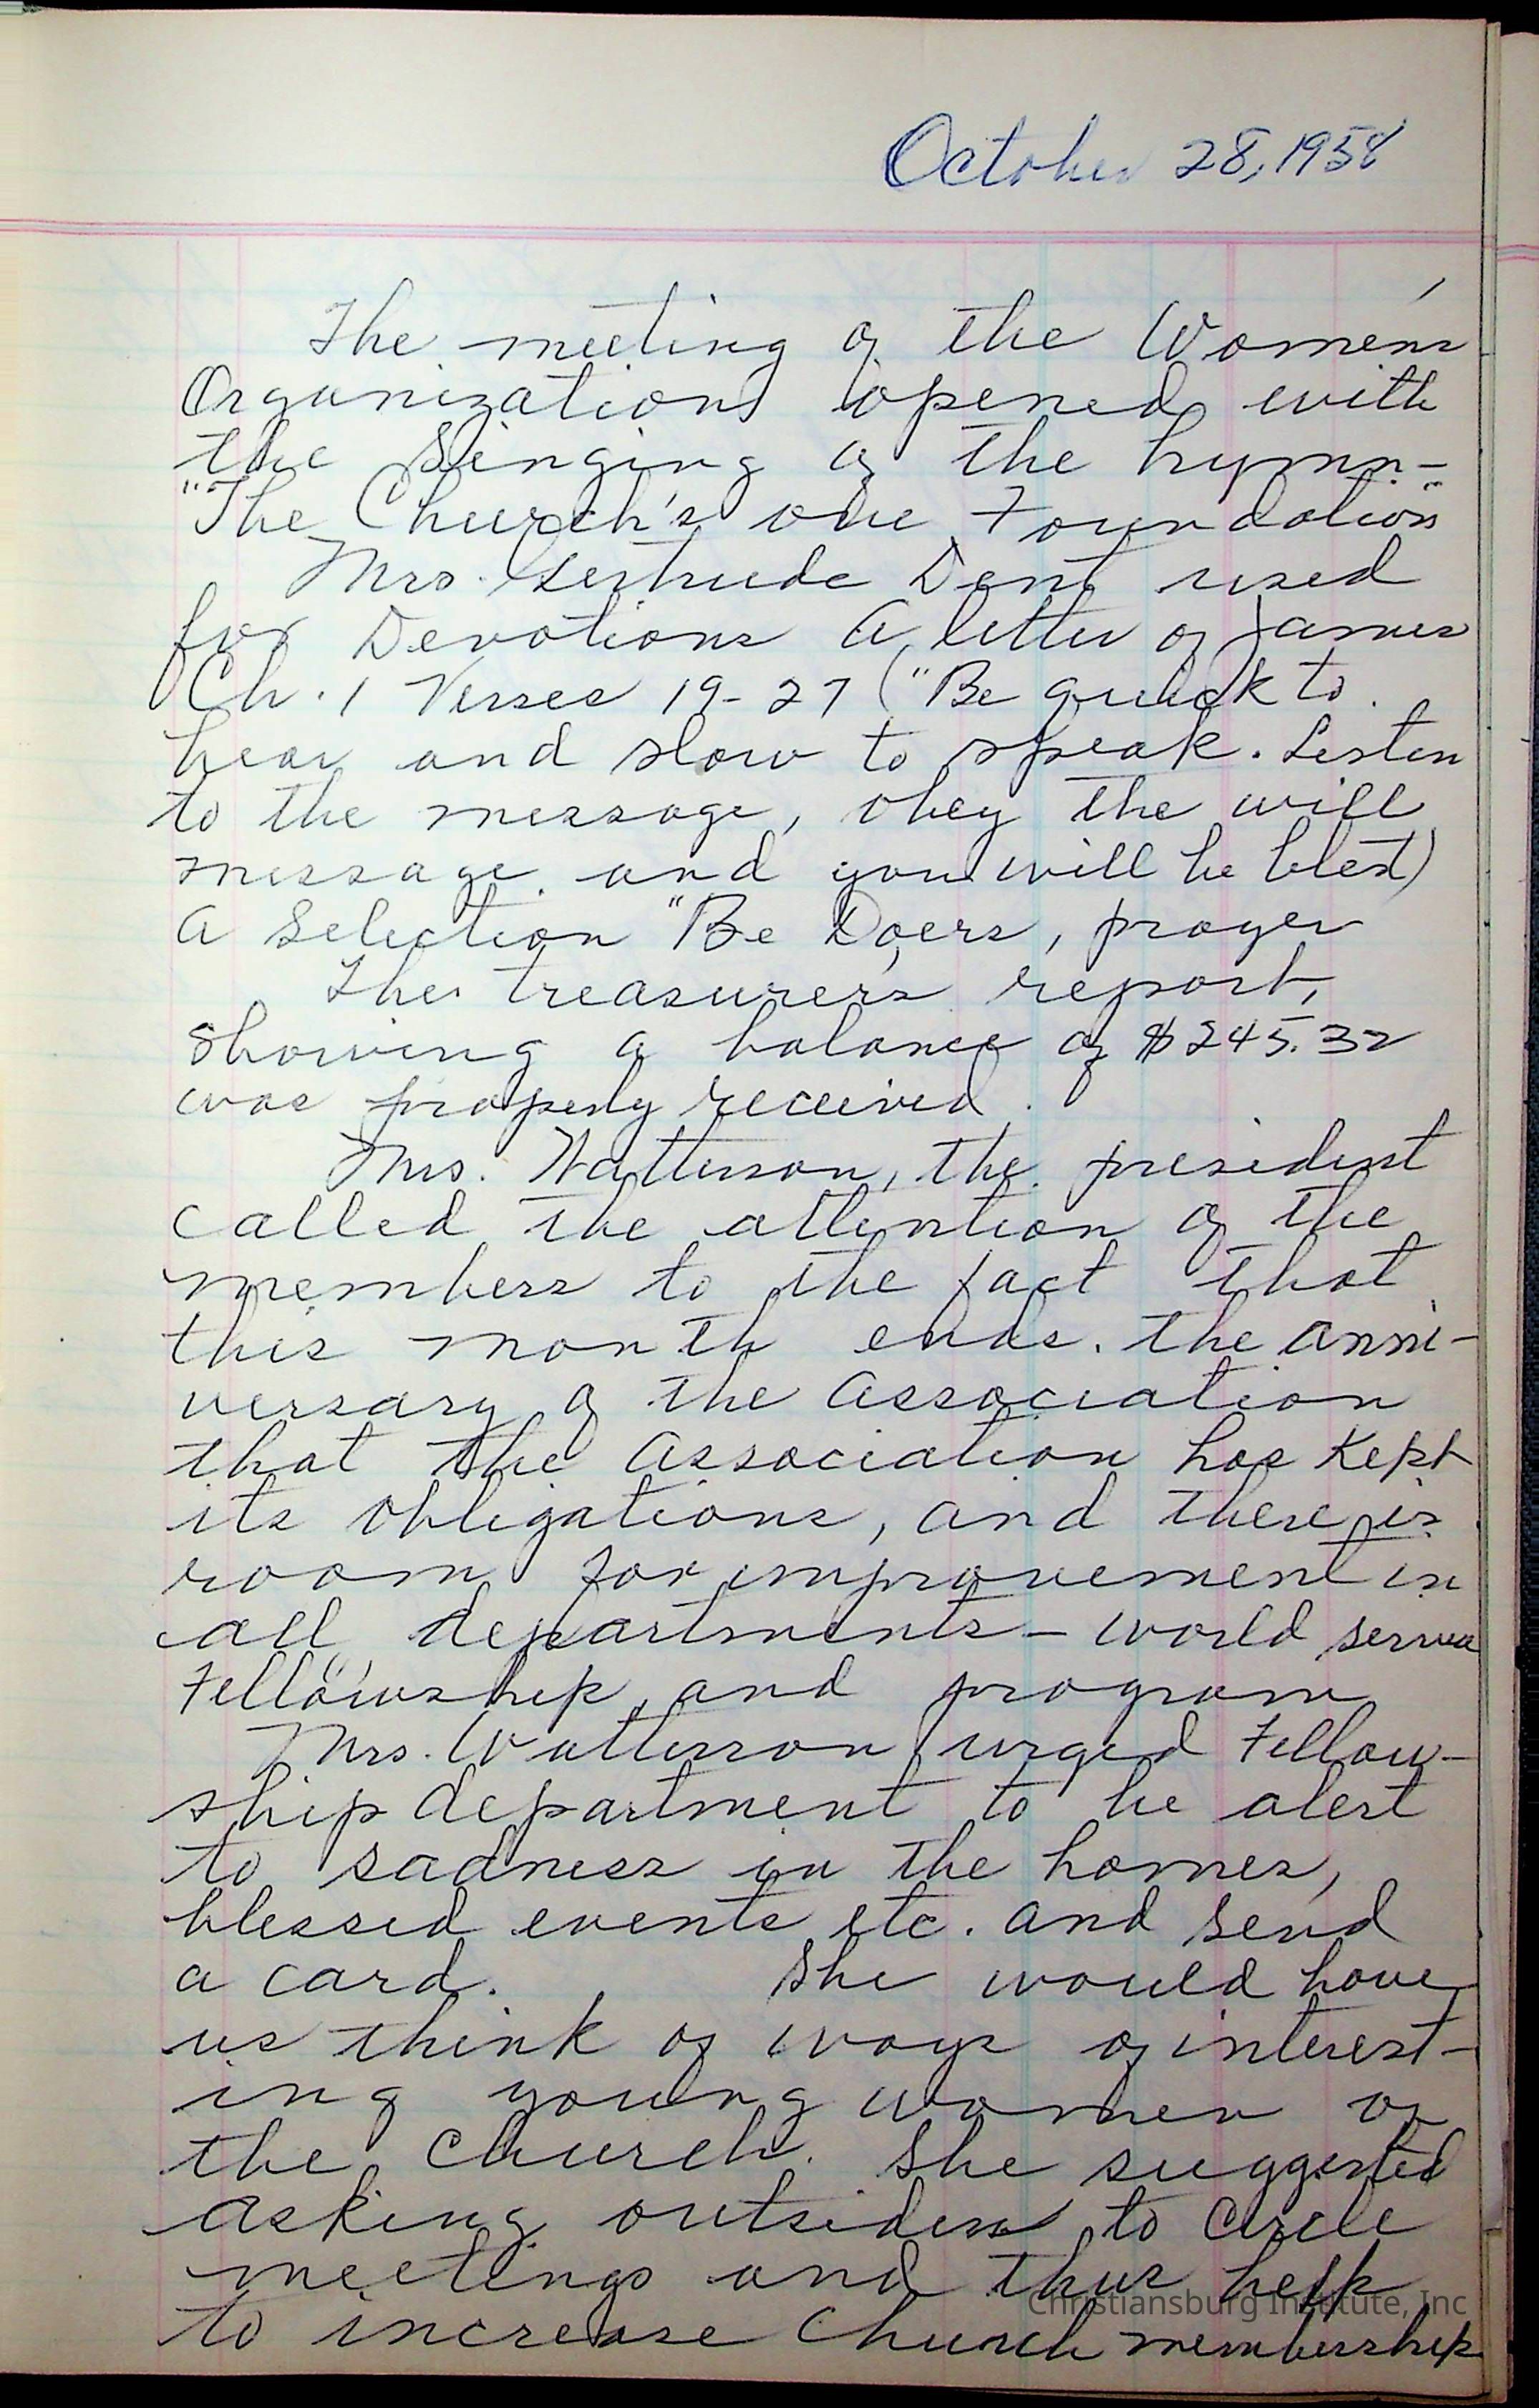 October 28, 1958
The meeting of the Women's
Organizations opened with
the Singing of the hymn-
"The Church's one Foundation"
Mrs. Gertrude Dent used
for Devotions A letter of James
Ch. 1 Verses 19-27 ("Be quick to
hear and slow to speak. Listen
to the message, obey the will
message. and you will be blest)
A Selection "Be Doers, prayer
The treasurer's report,
showing a balance of $245.32
was properly received.
Mrs. Watterson, the president
called the attention of the
members to the fact that
this month ends. the anni-
versary of the Association
that the Association has kept
its obligations, and there is
room for improvement in
all departments - world service
Fellowship, and program
Mrs. Watterson urged Fellow-
ship department to be alert
to sadness in the homes,
blessed events etc. and send
a card. She would have
us think of ways of interest-
ing young women of
the church. She suggested
asking outsiders to Circle
meetings and thus help
to increase Church membership
Christiansburg Institute, Inc